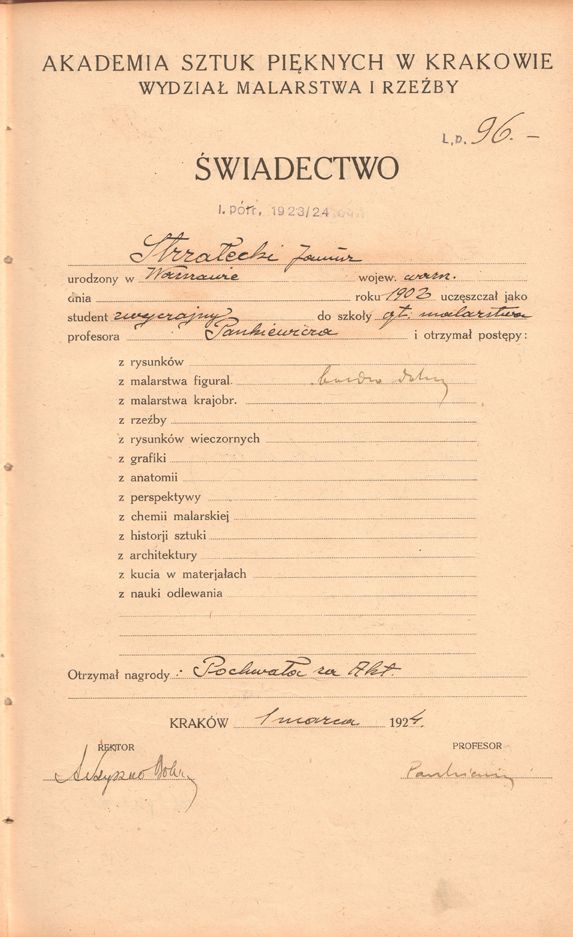 AKADEMIA SZTUK PIĘKNYCH W KRAKOWIE
WYDZIAŁ MALARSTWA I RZEŹBY
L.p. 96.—
ŚWIADECTWO
I. półr. 1923/24
Strzałecki Janusz
urodzony w Warszawie wojew. warsz.
dnia roku 1902 uczęszczał jako
student zwyczajny do szkoły gł. malarstwa
profesora Pankiewicza i otrzymał postępy:
z rysunków
z malarstwa figural. bardzo dobry
z malarstwa krajobr.
z rzeźby
z rysunków wieczornych
z grafiki
z anatomii
z perspektywy
z chemii malarskiej
z historji sztuki
z architektury
z kucia w materjałach
z nauki odlewania
Otrzymał nagrody: Pochwała za Akt.
KRAKÓW 1 marca 1924.
REKTOR PROFESOR
Pankiewicz